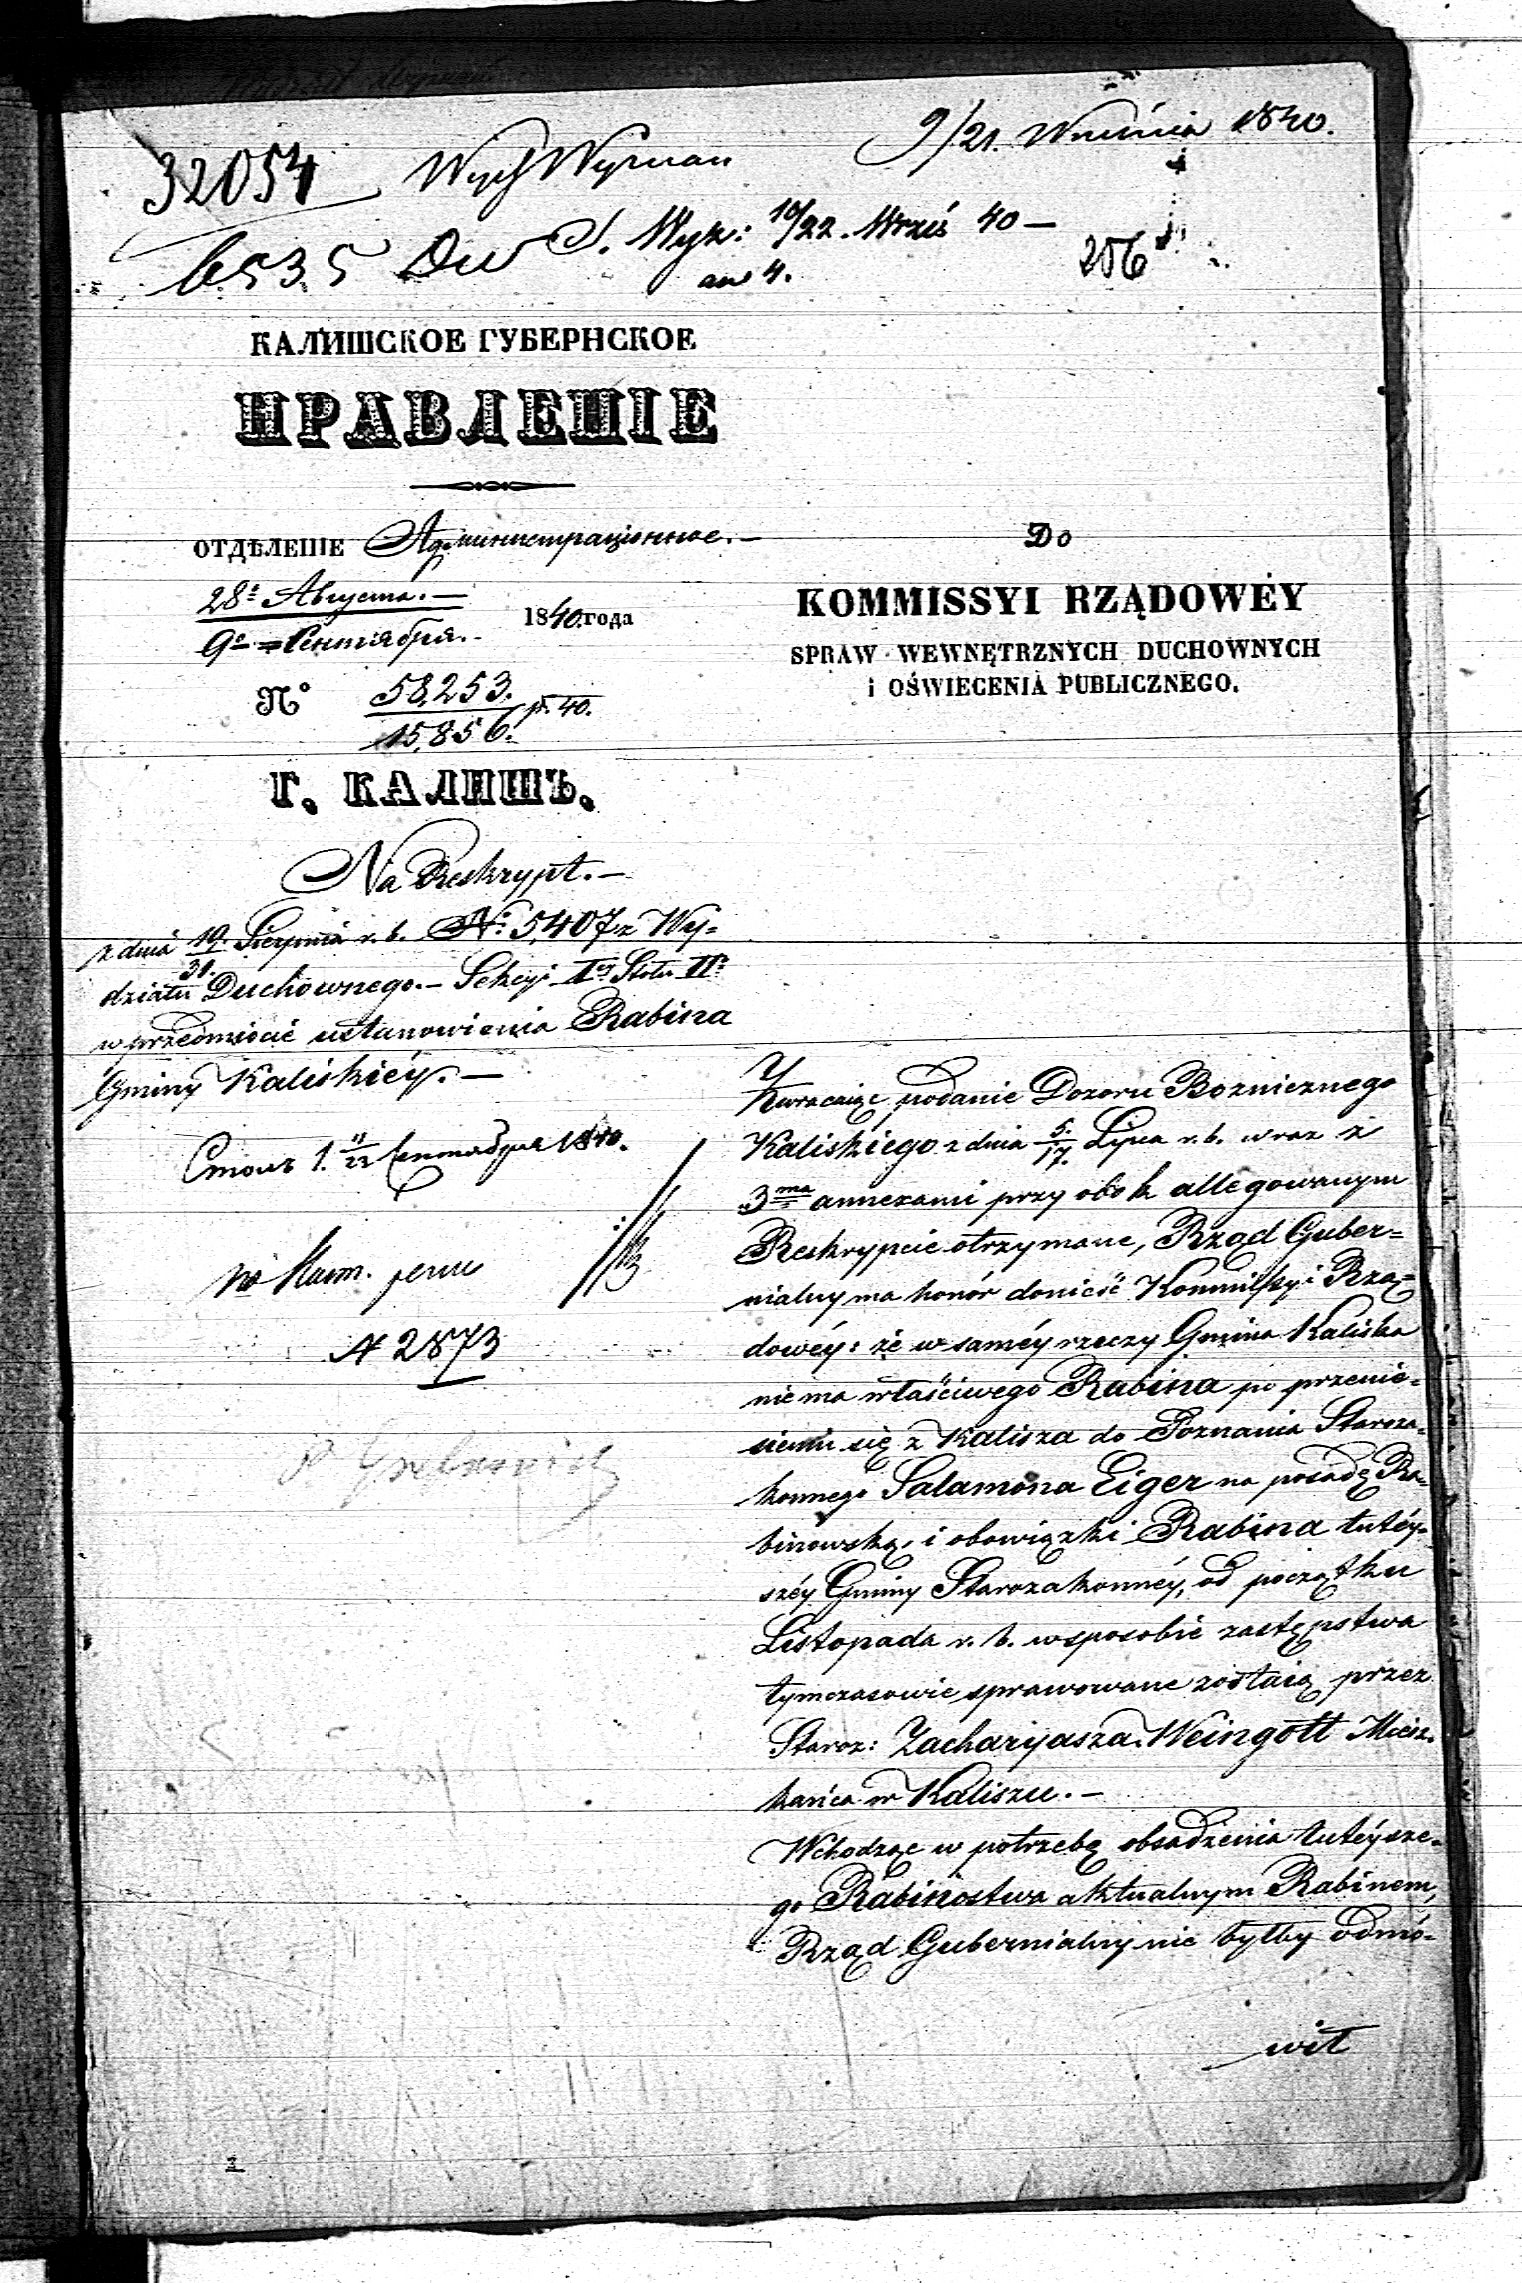 9/21. Września 1840.
32054
6535
Wyk: 10/22. Wrześ 40 —
206
КАЛИШСКОЕ ГУБЕРНСКОЕ
ПРАВЛЕНІЕ
ОТДѢЛЕНІЕ Администраціонное. —
28г Августа. —
9го Сентября. 1840 года
№ 58,253. / 15,856. р. 40.
Г. КАЛИШЪ.
Do
KOMMISSYI RZĄDOWÉY
SPRAW WEWNĘTRZNYCH DUCHOWNYCH
i OŚWIECENIA PUBLICZNEGO.
Na Reskrypt. —
z dnia 19/31. Sierpnia r. b. No: 5,407 z Wy-
działu Duchownego. — Sekcyi
w przedmiocie ustanowienia Rabina
Gminy Kaliskiéy. —
Сентября 1840.
N 2873
Zwracaiąc podanie Dozoru Boznicznego
Kaliskiego z dnia 5/17. Lipca r. b. wraz z
3ma annexami przy obok allegowanym
Reskrypcie otrzymane, Rząd Guber-
nialny ma honór donieść Kommissyi Rzą-
dowéy: że w saméy rzeczy Gmina Kaliska
nie ma właściwego Rabina po przenie-
sieniu się z Kalisza do Poznania Staroza-
konnego Salamona Eiger na posadę Ra-
binowską, i obowiązki Rabina tutéy-
széy Gminy Starozakonnéy, od początku
Listopada r. b. w sposobie zastępstwa
tymczasowie sprawowane zostaią przez
Staroz: Zacharyasza Weingott Miesz-
kańca w Kaliszu. —
Wchodząc w potrzebę obsadzenia tutéysze-
go Rabinostwa aktualnym Rabinem,
Rząd Gubernialny nie byłby odmó-
wił